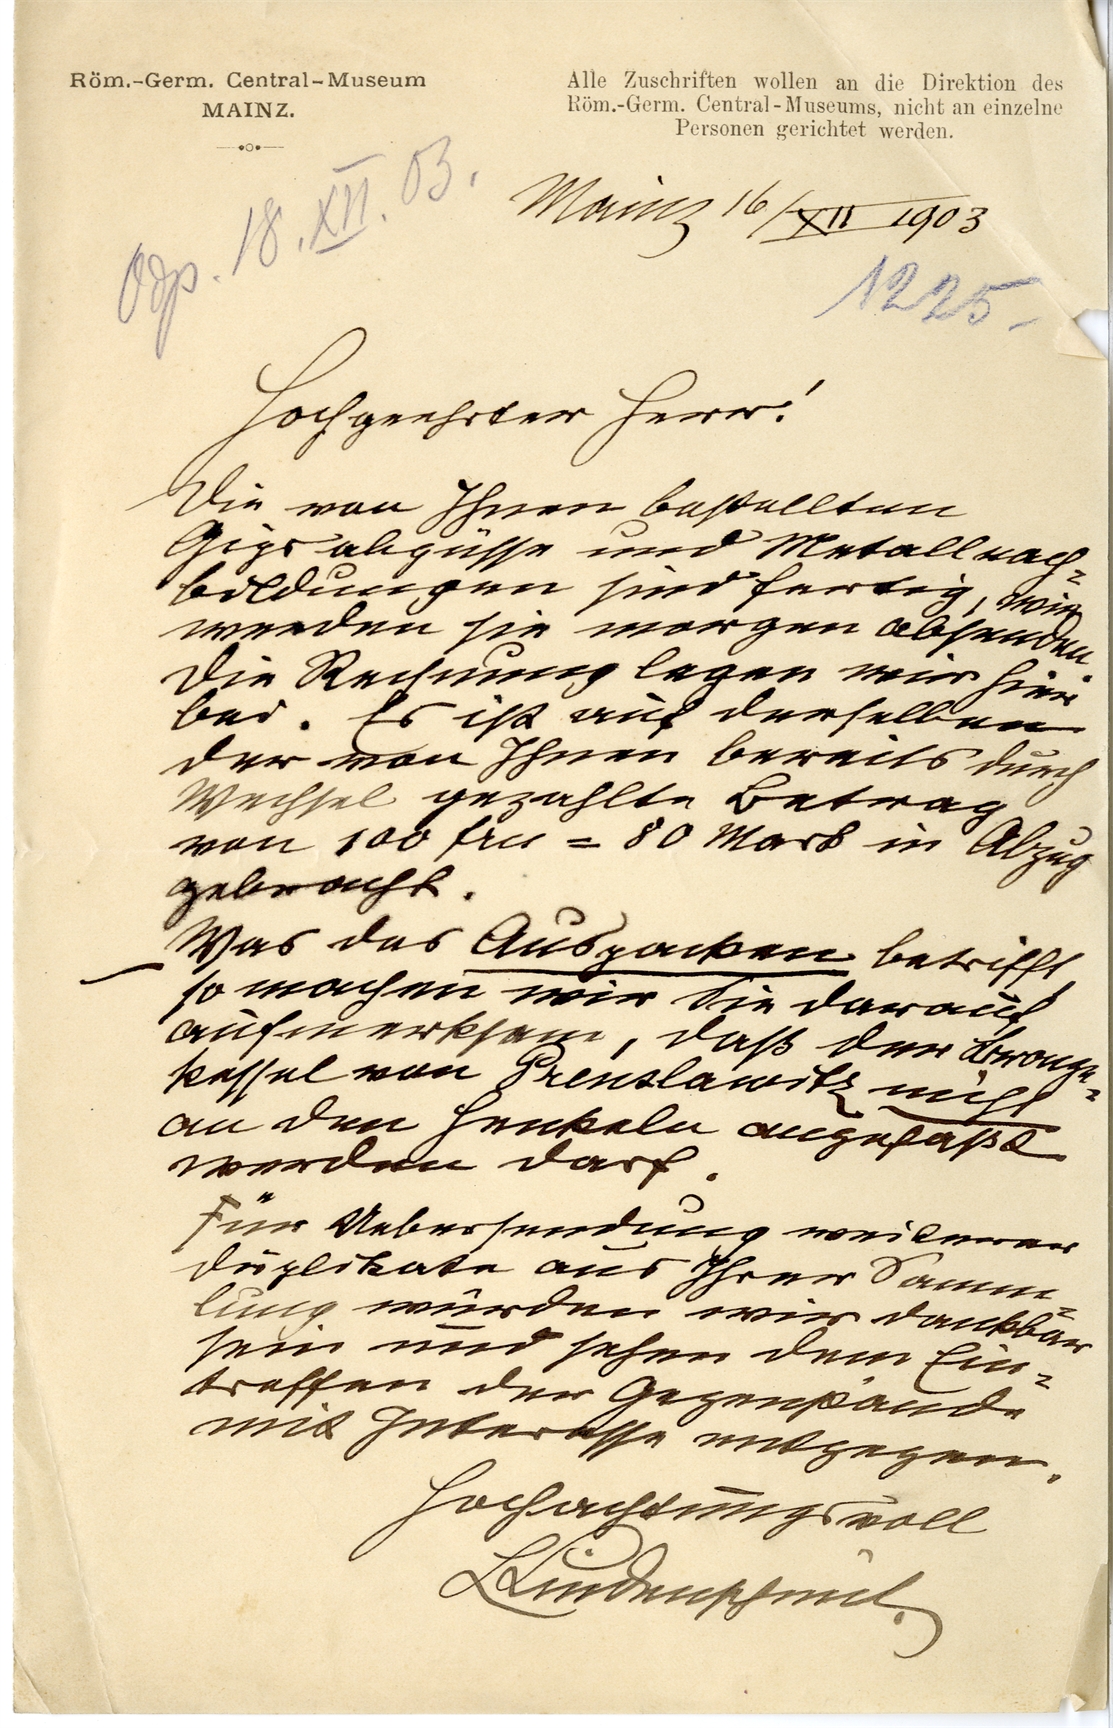 Röm.-Germ. Central-Museum
MAINZ.
Alle Zuschriften wollen an die Direktion des
Röm.-Germ. Central-Museums, nicht an einzelne
Personen gerichtet werden.
Odp. 18. XII. 03.
Mainz 16/XII 1903
1225.
Hochgeehrter Herr!
Die von Ihnen bestellten
Gipsabgüsse und Metallnach-
bildungen sind fertig, wir
werden sie morgen absenden.
Die Rechnung legen wir hier
bei. Es ist auf derselben
der von Ihnen bereits durch
Wechsel gezahlte Betrag
von 100 frcs = 80 Mark in Abzug
gebracht.
Was das Auspacken betrifft,
so machen wir Sie darauf
aufmerksam, daß der Bronze-
kessel von Prenslawitz nicht
an den Henkeln angefaßt
werden darf.
Für Uebersendung weiterer
Duplikate aus Ihrer Samm-
lung würden wir dankbar
sein und sehen dem Ein-
treffen der Gegenstände
mit Interesse entgegen.
Hochachtungsvoll
L Lindenschmit.